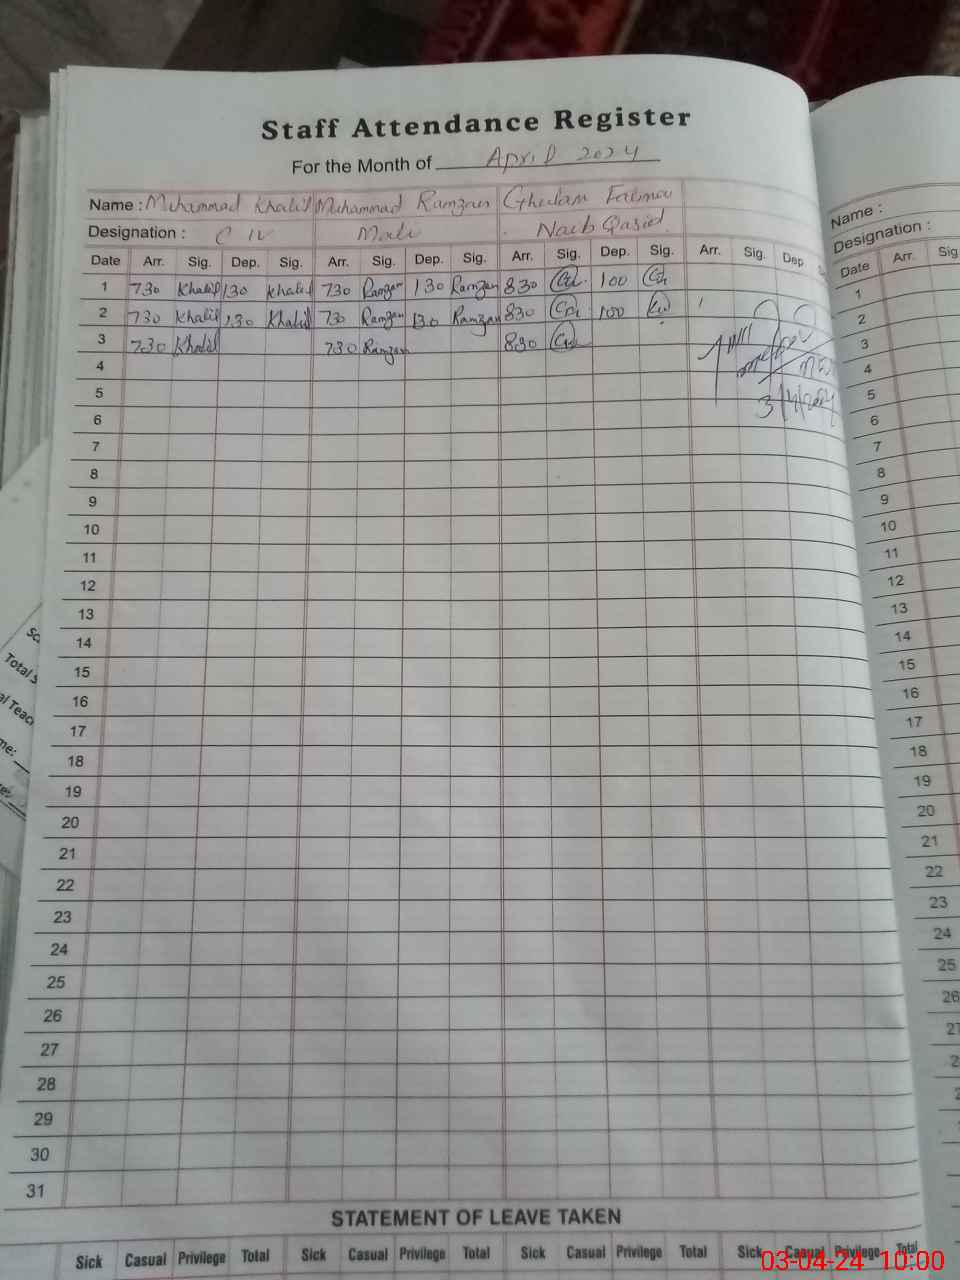 Staff Attendance Register
For the Month of April 2024
Name : Muhammad Khalil Muhammad Ramzan Ghulam Fatima
Designation : C IV Mali Naib Qasid
Date Arr. Sig. Dep. Sig. Arr. Sig. Dep. Sig. Arr. Sig. Dep. Sig. Arr. Sig. Dep.
1 730 Khalil 130 Khalil 730 Ramzan 130 Ramzan 830 100
2 730 Khalil 130 Khalil 730 Ramzan 130 Ramzan 830 100
3 730 Khalil 730 Ramzan 830
4
5
3/4/2024
6
7
8
9
10
11
12
13
14
15
16
17
18
19
20
21
22
23
24
25
26
27
28
29
30
31
STATEMENT OF LEAVE TAKEN
Sick Casual Privilege Total Sick Casual Privilege Total Sick Casual Privilege Total Sick Casual Privilege Total
Name :
Designation :
Date Arr. Sig
1
2
3
4
5
6
7
8
9
10
11
12
13
14
15
16
17
18
19
20
21
22
23
24
25
26
Total
03-04-24 10:00